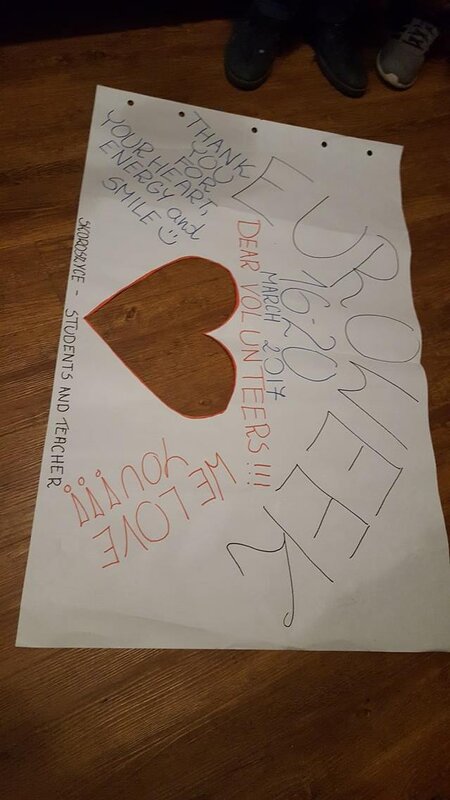 EUROWEEK
16-20
MARCH 2017
DEAR VOLUNTEERS!!!
THANK
YOU
FOR
YOUR HEART,
ENERGY and
SMILE ☺
WE LOVE
YOU!!!
SKOROSZYCE - STUDENTS AND TEACHER